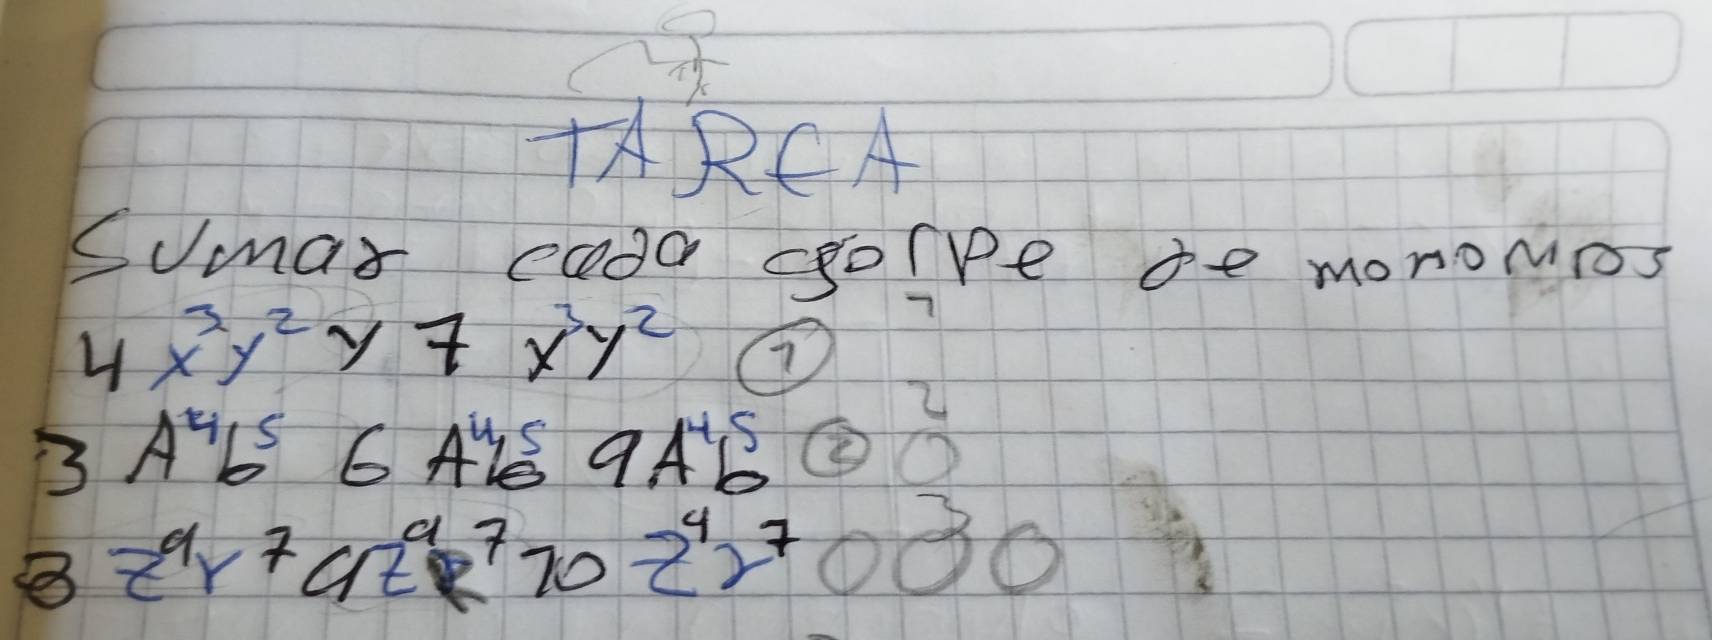 TAREA
Sumar cada gorpe de monomios
4 x³y² y 7 x³y² ①
3 A⁴b⁵ 6 A⁴b⁵ 9A⁴b⁵ ②
8 z⁹r⁷ 9z⁹r⁷ 10 z⁹r⁷